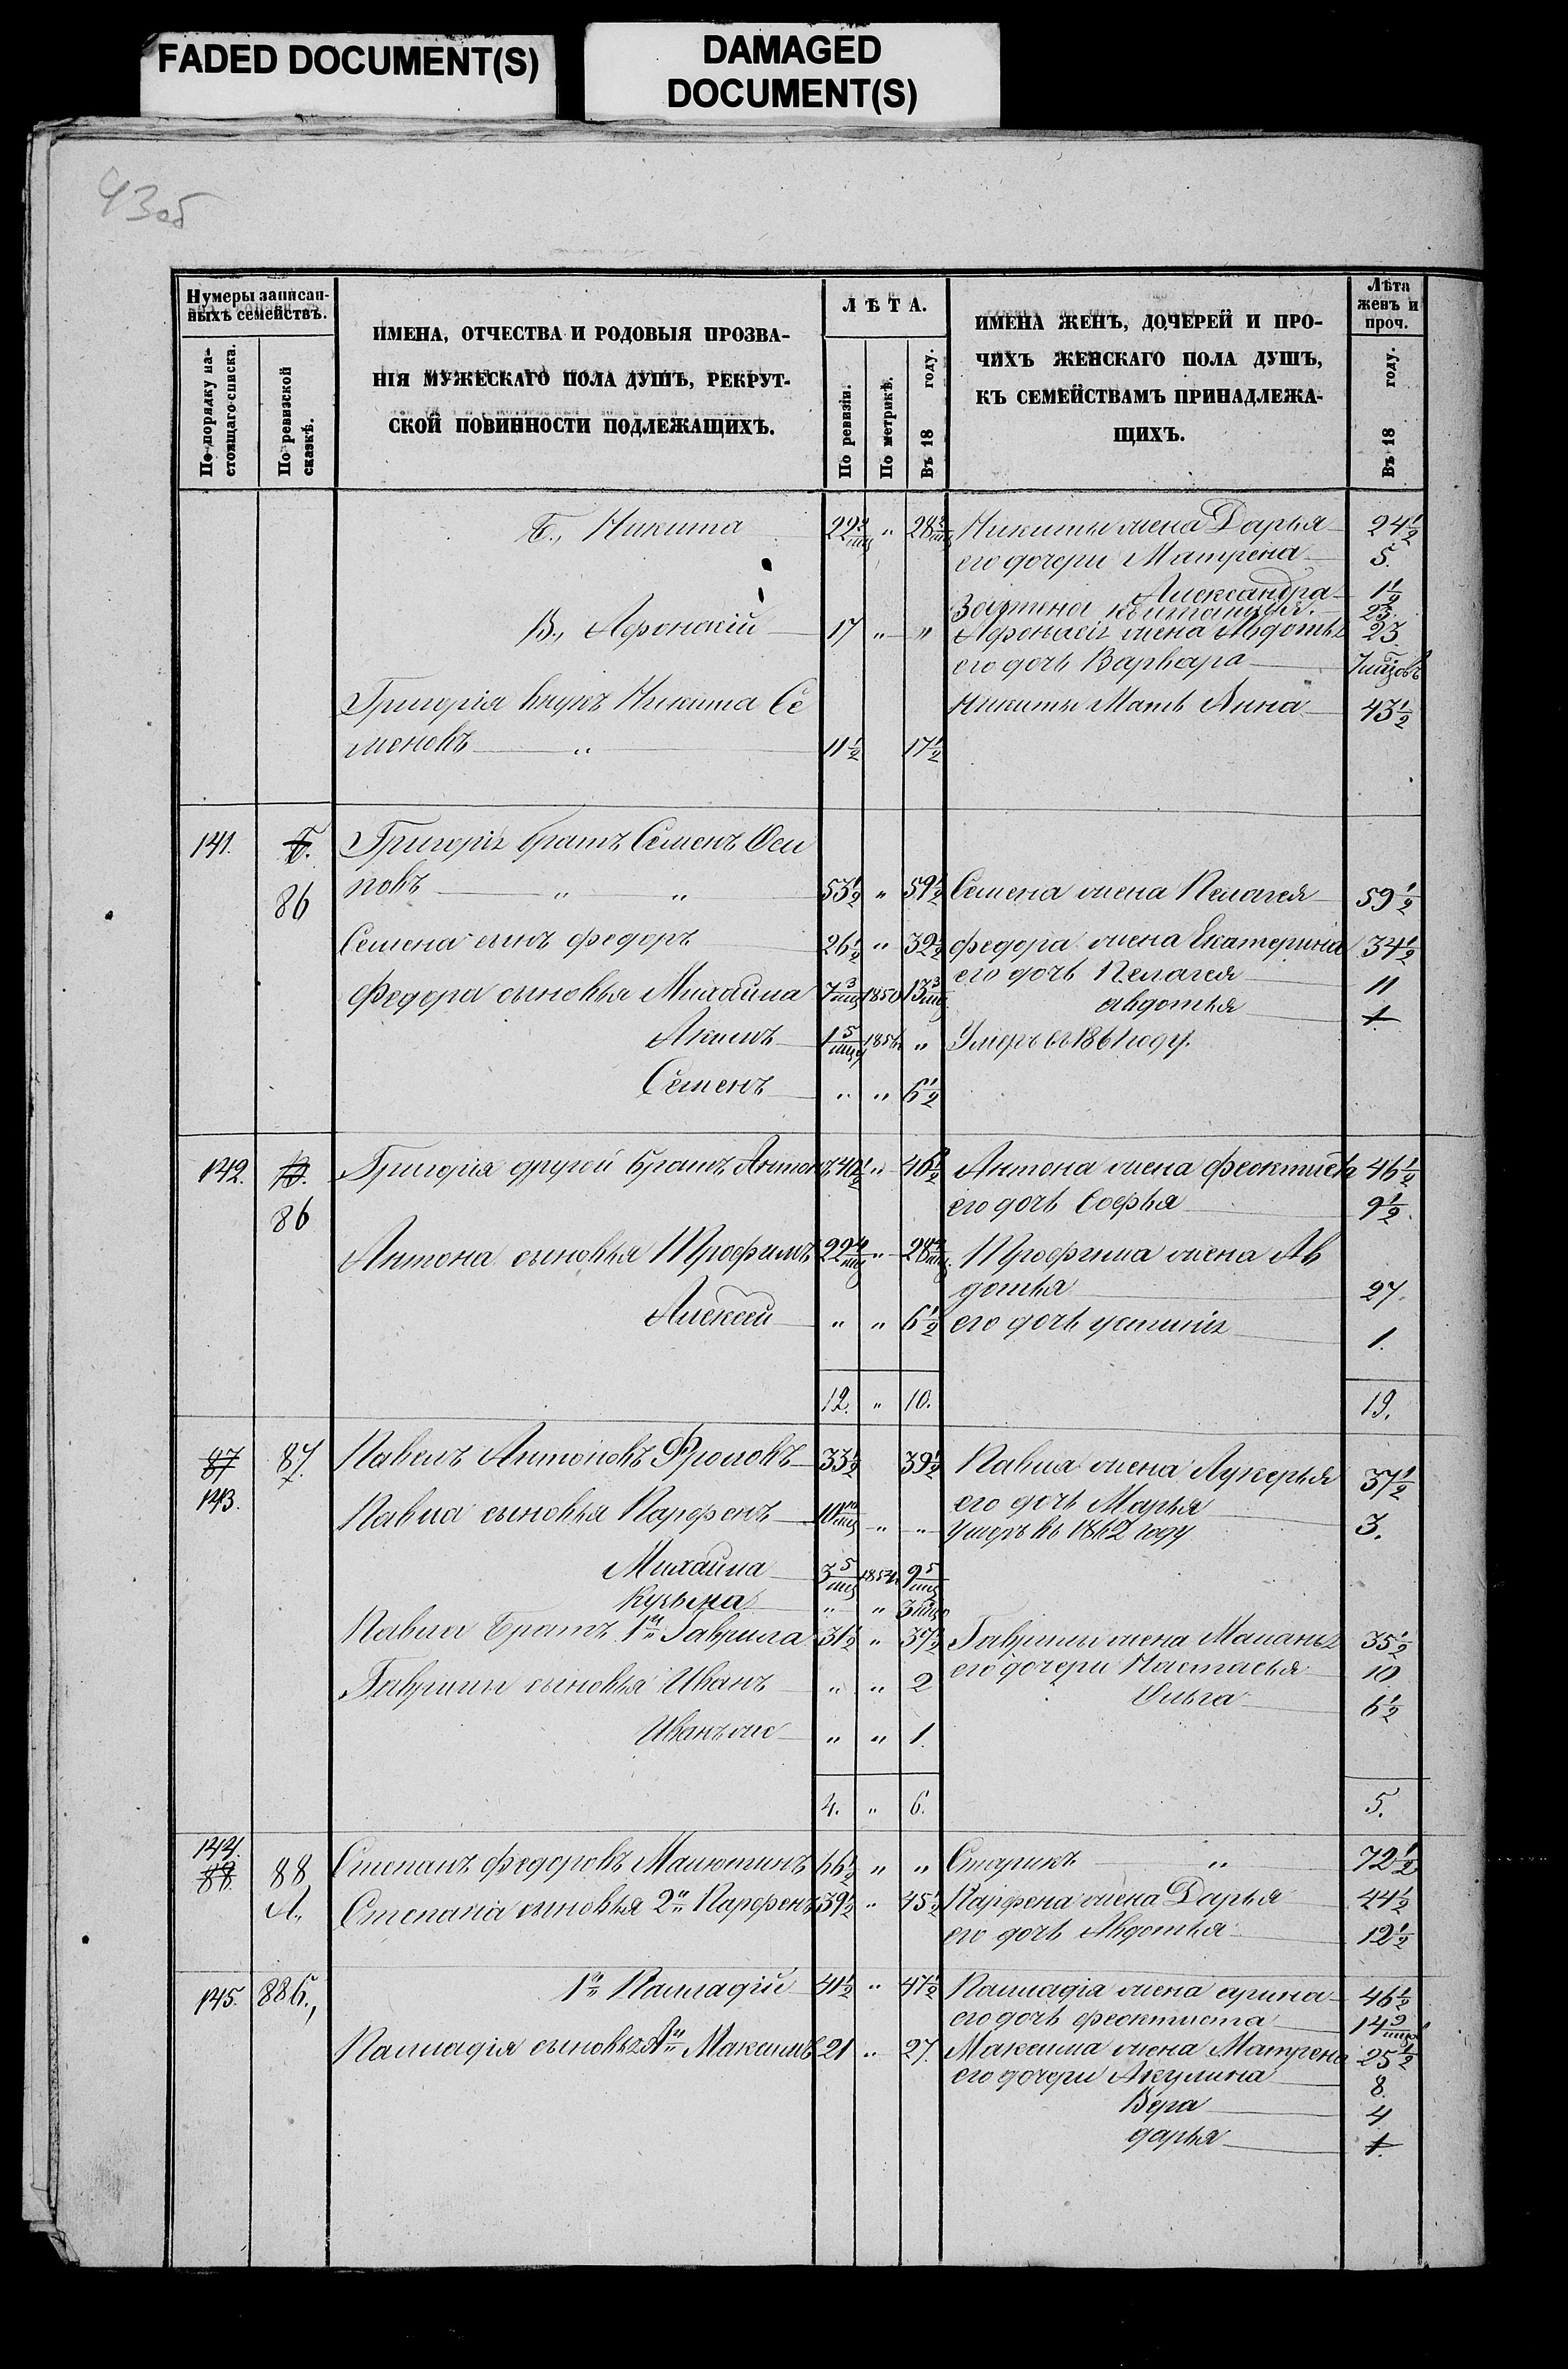 FADED DOCUMENT(S)
DAMAGED
DOCUMENT(S)
43об
Нумеры записан-
ныхъ семействъ.
По порядку на-
стоящаго списка.
По ревизской
сказкѣ.
ИМЕНА, ОТЧЕСТВА И РОДОВЫЯ ПРОЗВА-
НІЯ МУЖЕСКАГО ПОЛА ДУШЪ, РЕКРУТ-
СКОЙ ПОВИННОСТИ ПОДЛЕЖАЩИХЪ.
ЛѢТА.
По ревизіи.
По метрикѣ.
Въ 18 году.
ИМЕНА ЖЕНЪ, ДОЧЕРЕЙ И ПРО-
ЧИХЪ ЖЕНСКАГО ПОЛА ДУШЪ,
КЪ СЕМЕЙСТВАМЪ ПРИНАДЛЕЖА-
ЩИХЪ.
Лѣта
женъ и
проч.
Въ 18 году.
Б., Никита 22 3/мц " 28 3/мц Никиты жена Дарья 24 1/2
его дочери Матрена 5.
Александра 1 1/2
23.
В., Афонасій 17 " " Афонасія жена Авдотья 23
его дочь Варвара
Григорія внукъ Никита Се Никиты Мать Анна 43 1/2
меновъ " 11 1/2 17 1/2
141. Б. Григорія братъ Семенъ Оси
86 повъ " " 53 1/2 " 59 1/2 Семена жена Пелагея 59 1/2
Семена сынъ федоръ 26 1/2 " 32 1/2 федора жена Екатерина 34 1/2
его дочь Пелагея 11
Федора сыновья Михайла 7 3/мц 1850 13 3/мц авдотья 1.
Акимъ 1 5/мц 1856 " Умеръ въ 1861 году.
Семенъ " " 6 1/2
142. В. Григорія другой братъ Антонъ 40 1/2 " 46 1/2 Антона жена феоктиста 46 1/2
86 его дочь Софья 9 1/2
Антона сыновья Трофимъ 22 4/мц " 28 4/мц Трофима жена Ав
дотья 27.
Алексей " " 6 1/2 его дочь устинія 1.
12. " 10. 19.
87 87. Павелъ Антоновъ Фроловъ 33 1/2 39 1/2 Павла жена Лукерья 37 1/2
143. его дочь Марья 3.
Павла сыновья Парфенъ 10 10/мц " " Умеръ въ 1862 году
Михайла 3 5/мц 1854 9 5/мц
Кузьма " "
Павла Братъ 1й Гаврила 31 1/2 " 37 1/2 Гаврилы жена Маланья 35 1/2
его дочери Настасья 10
Гаврилы сыновья Иванъ " " 2 Ольга 6 1/2
Иванъ же " " 1.
4. " 6. 5.
144.
88. 88 Степанъ федоровъ Малютинъ 66 1/2 " " Старикъ " 72 1/2
А., Степана сыновья 2й Парфенъ 39 1/2 " 45 1/2 Парфена жена Дарья 44 1/2
его дочь Авдотья 12 1/2
145. 88 Б., 1й Палладій 41 1/2 " 47 1/2 Палладія жена арина 46 1/2
его дочь феоктиста 14
Палладія сыновья А Максимъ 21 " 27. Максима жена Матрена 25 1/2
его дочери Акулина 8.
Вера 4
дарья 1.